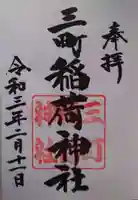 奉拝
三町稲荷神社
三町
神社
令和三年二月十一日